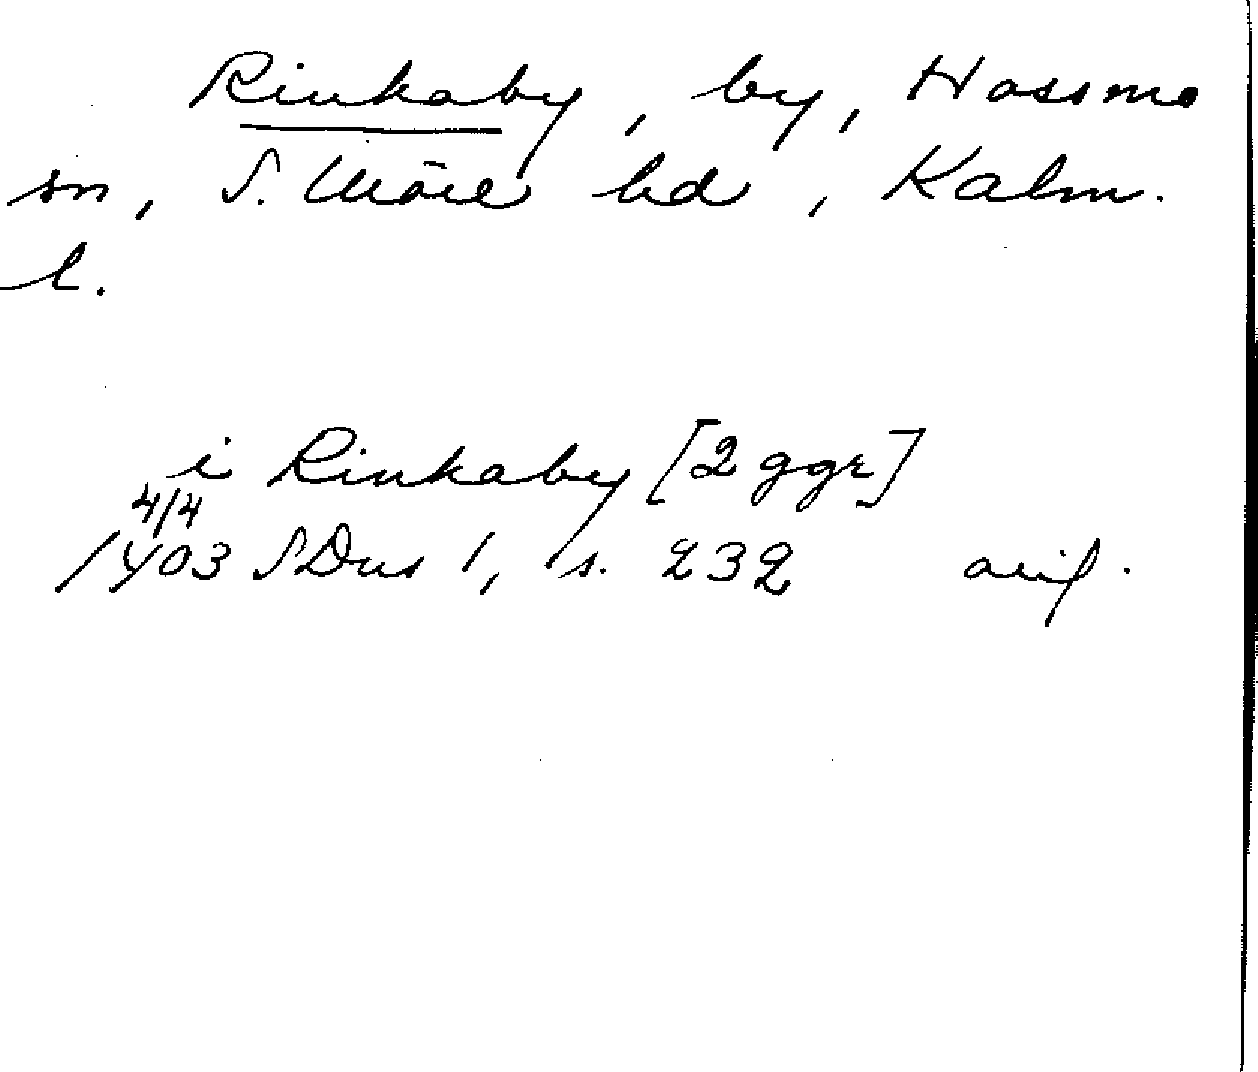 Rinkaby, by, Hossmo
sn, S. Möre hd, Kalm.
l.
i Rinkaby [2 ggr]
4/4
1403 SDns 1, s. 232 avif.